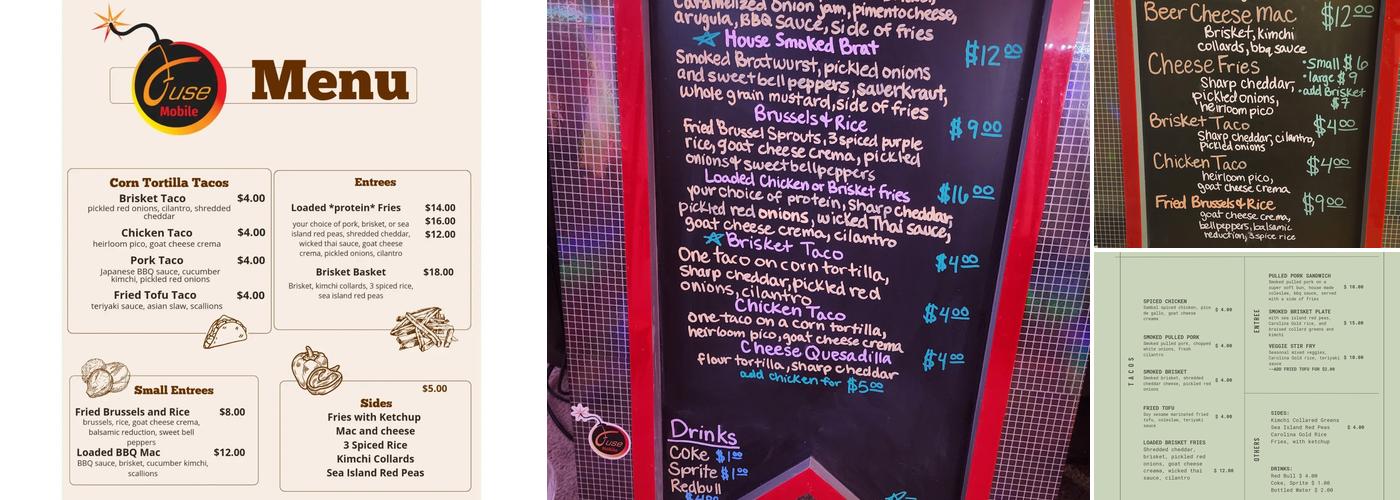 Fuse
Mobile
Menu
Corn Tortilla Tacos
Brisket Taco $4.00
pickled red onions, cilantro, shredded
cheddar
Chicken Taco $4.00
heirloom pico, goat cheese crema
Pork Taco $4.00
Japanese BBQ sauce, cucumber
kimchi, pickled red onions
Fried Tofu Taco $4.00
teriyaki sauce, asian slaw, scallions
Entrees
Loaded *protein* Fries $14.00
your choice of pork, brisket, or sea $16.00
island red peas, shredded cheddar, $12.00
wicked thai sauce, goat cheese
crema, pickled onions, cilantro
Brisket Basket $18.00
Brisket, kimchi collards, 3 spiced rice,
sea island red peas
Small Entrees
Fried Brussels and Rice $8.00
brussels, rice, goat cheese crema,
balsamic reduction, sweet bell
peppers
Loaded BBQ Mac $12.00
BBQ sauce, brisket, cucumber kimchi,
scallions
$5.00
Sides
Fries with Ketchup
Mac and cheese
3 Spiced Rice
Kimchi Collards
Sea Island Red Peas
Caramelized onion jam, pimento cheese,
arugula, BBQ sauce, side of fries
House Smoked Brat $12.00
Smoked Bratwurst, pickled onions
and sweet bell peppers, sauerkraut,
whole grain mustard, side of fries
Brussels & Rice $9.00
Fried Brussel Sprouts, 3 spiced purple
rice, goat cheese crema, pickled
onions & sweet bell peppers
Loaded Chicken or Brisket fries $16.00
your choice of protein, sharp cheddar,
pickled red onions, wicked Thai sauce,
goat cheese crema, cilantro
Brisket Taco $4.00
One taco on corn tortilla,
sharp cheddar, pickled red
onions, cilantro
Chicken Taco $4.00
one taco on a corn tortilla,
heirloom pico, goat cheese crema
Cheese Quesadilla $4.00
flour tortilla, sharp cheddar
add chicken for $5.00
Drinks
Coke $1.00
Sprite $1.00
Redbull
Fuse
Beer Cheese Mac $12.00
Brisket, kimchi
collards, bbq sauce
Cheese Fries •Small $6
Sharp cheddar, •large $9
pickled onions, •add Brisket
heirloom pico $7
Brisket Taco $4.00
Sharp cheddar, cilantro,
pickled onions
Chicken Taco $4.00
heirloom pico,
goat cheese crema
Fried Brussels & Rice $9.00
goat cheese crema,
bell peppers, balsamic
reduction, 3 spice rice
TACOS
SPICED CHICKEN
Sambal spiced chicken, pico $ 4.00
de gallo, goat cheese
creama
SMOKED PULLED PORK
Smoked pulled pork, chopped $ 4.00
white onions, fresh
cilantro
SMOKED BRISKET
Smoked brisket, shredded $ 4.00
cheddar cheese, pickled red
onions
FRIED TOFU
Soy sesame marinated fried $ 4.00
tofu, coleslaw, teriyaki
sauce
LOADED BRISKET FRIES
Shredded cheddar,
brisket, pickled red
onions, goat cheese
creama, wicked thai $ 12.00
sauce, cilantro
ENTREE
PULLED PORK SANDWICH
Smoked pulled pork on a
super soft bun, house made $ 10.00
coleslaw, bbq sauce, served
with a side of fries
SMOKED BRISKET PLATE
with sea island red peas,
Carolina Gold rice, and $ 15.00
braised collard greens and
kimchi
VEGGIE STIR FRY
Seasonal mixed veggies,
Carolina Gold rice, teriyaki $ 10.00
sauce
--ADD FRIED TOFU FOR $2.00
OTHERS
SIDES:
Kimchi Collared Greens
Sea Island Red Peas $ 4.00
Carolina Gold Rice
Fries, with ketchup
DRINKS:
Red Bull $ 4.00
Coke, Sprite $ 1.00
Bottled Water $ 2.00